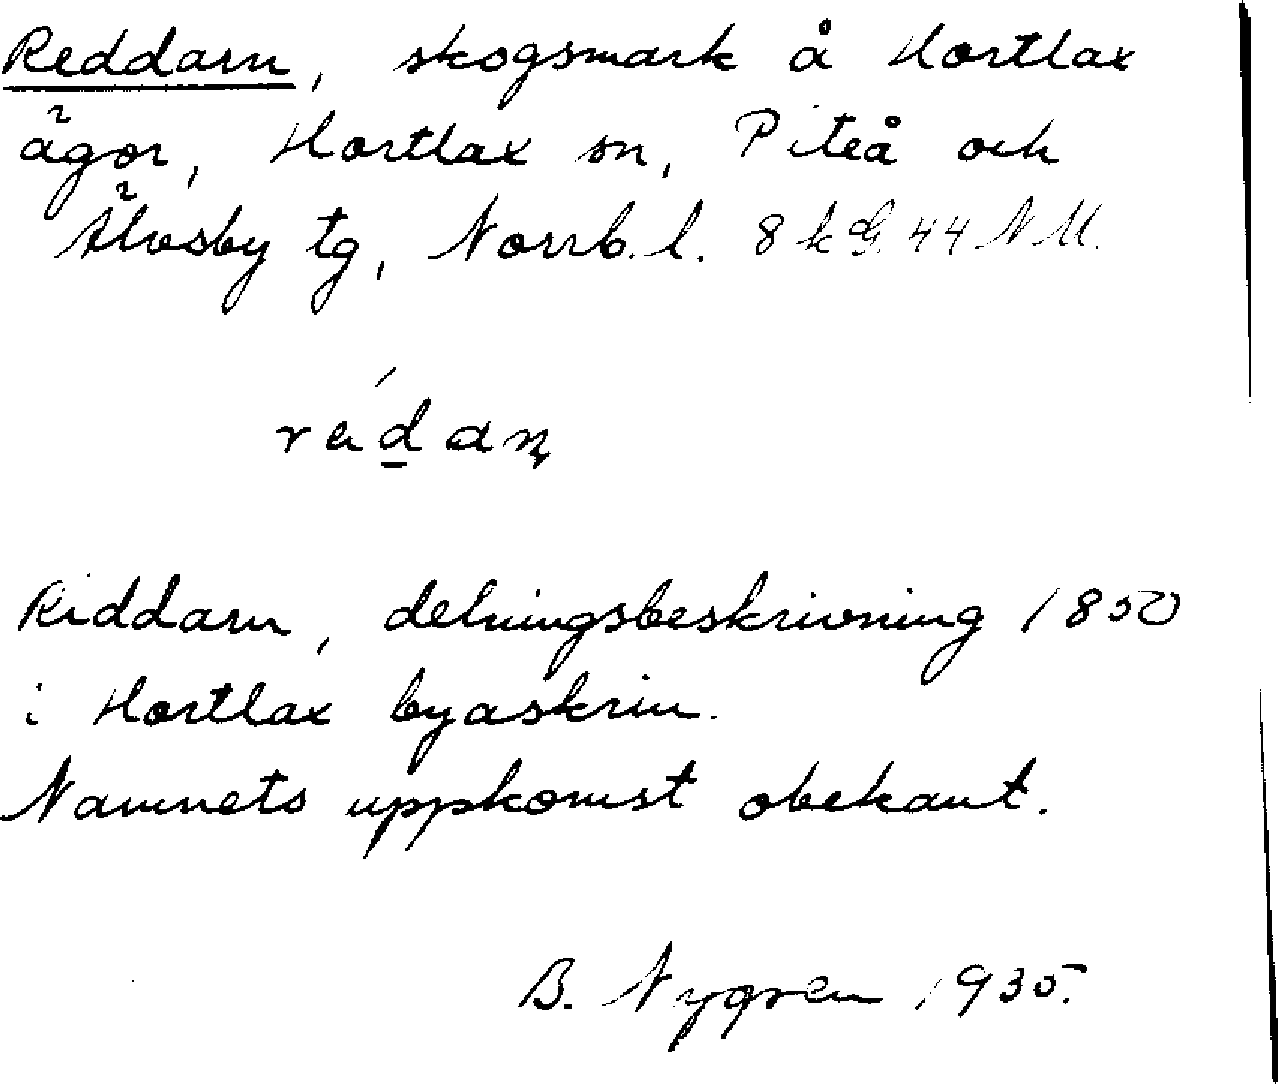 Reddarn, skogsmark å Hortlax
ägor, Hortlax sn, Piteå och
Älvsby tg, Norrb. l. 8 k G. 44 N M.
Riddarn, delningsbeskrivning 1850
i Hortlax byaskrin.
Namnets uppkomst obekant.
B. Nygren 1935.